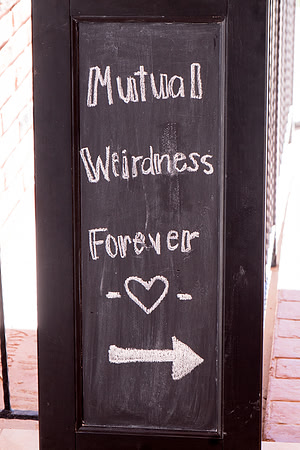 Mutual
Weirdness
Forever